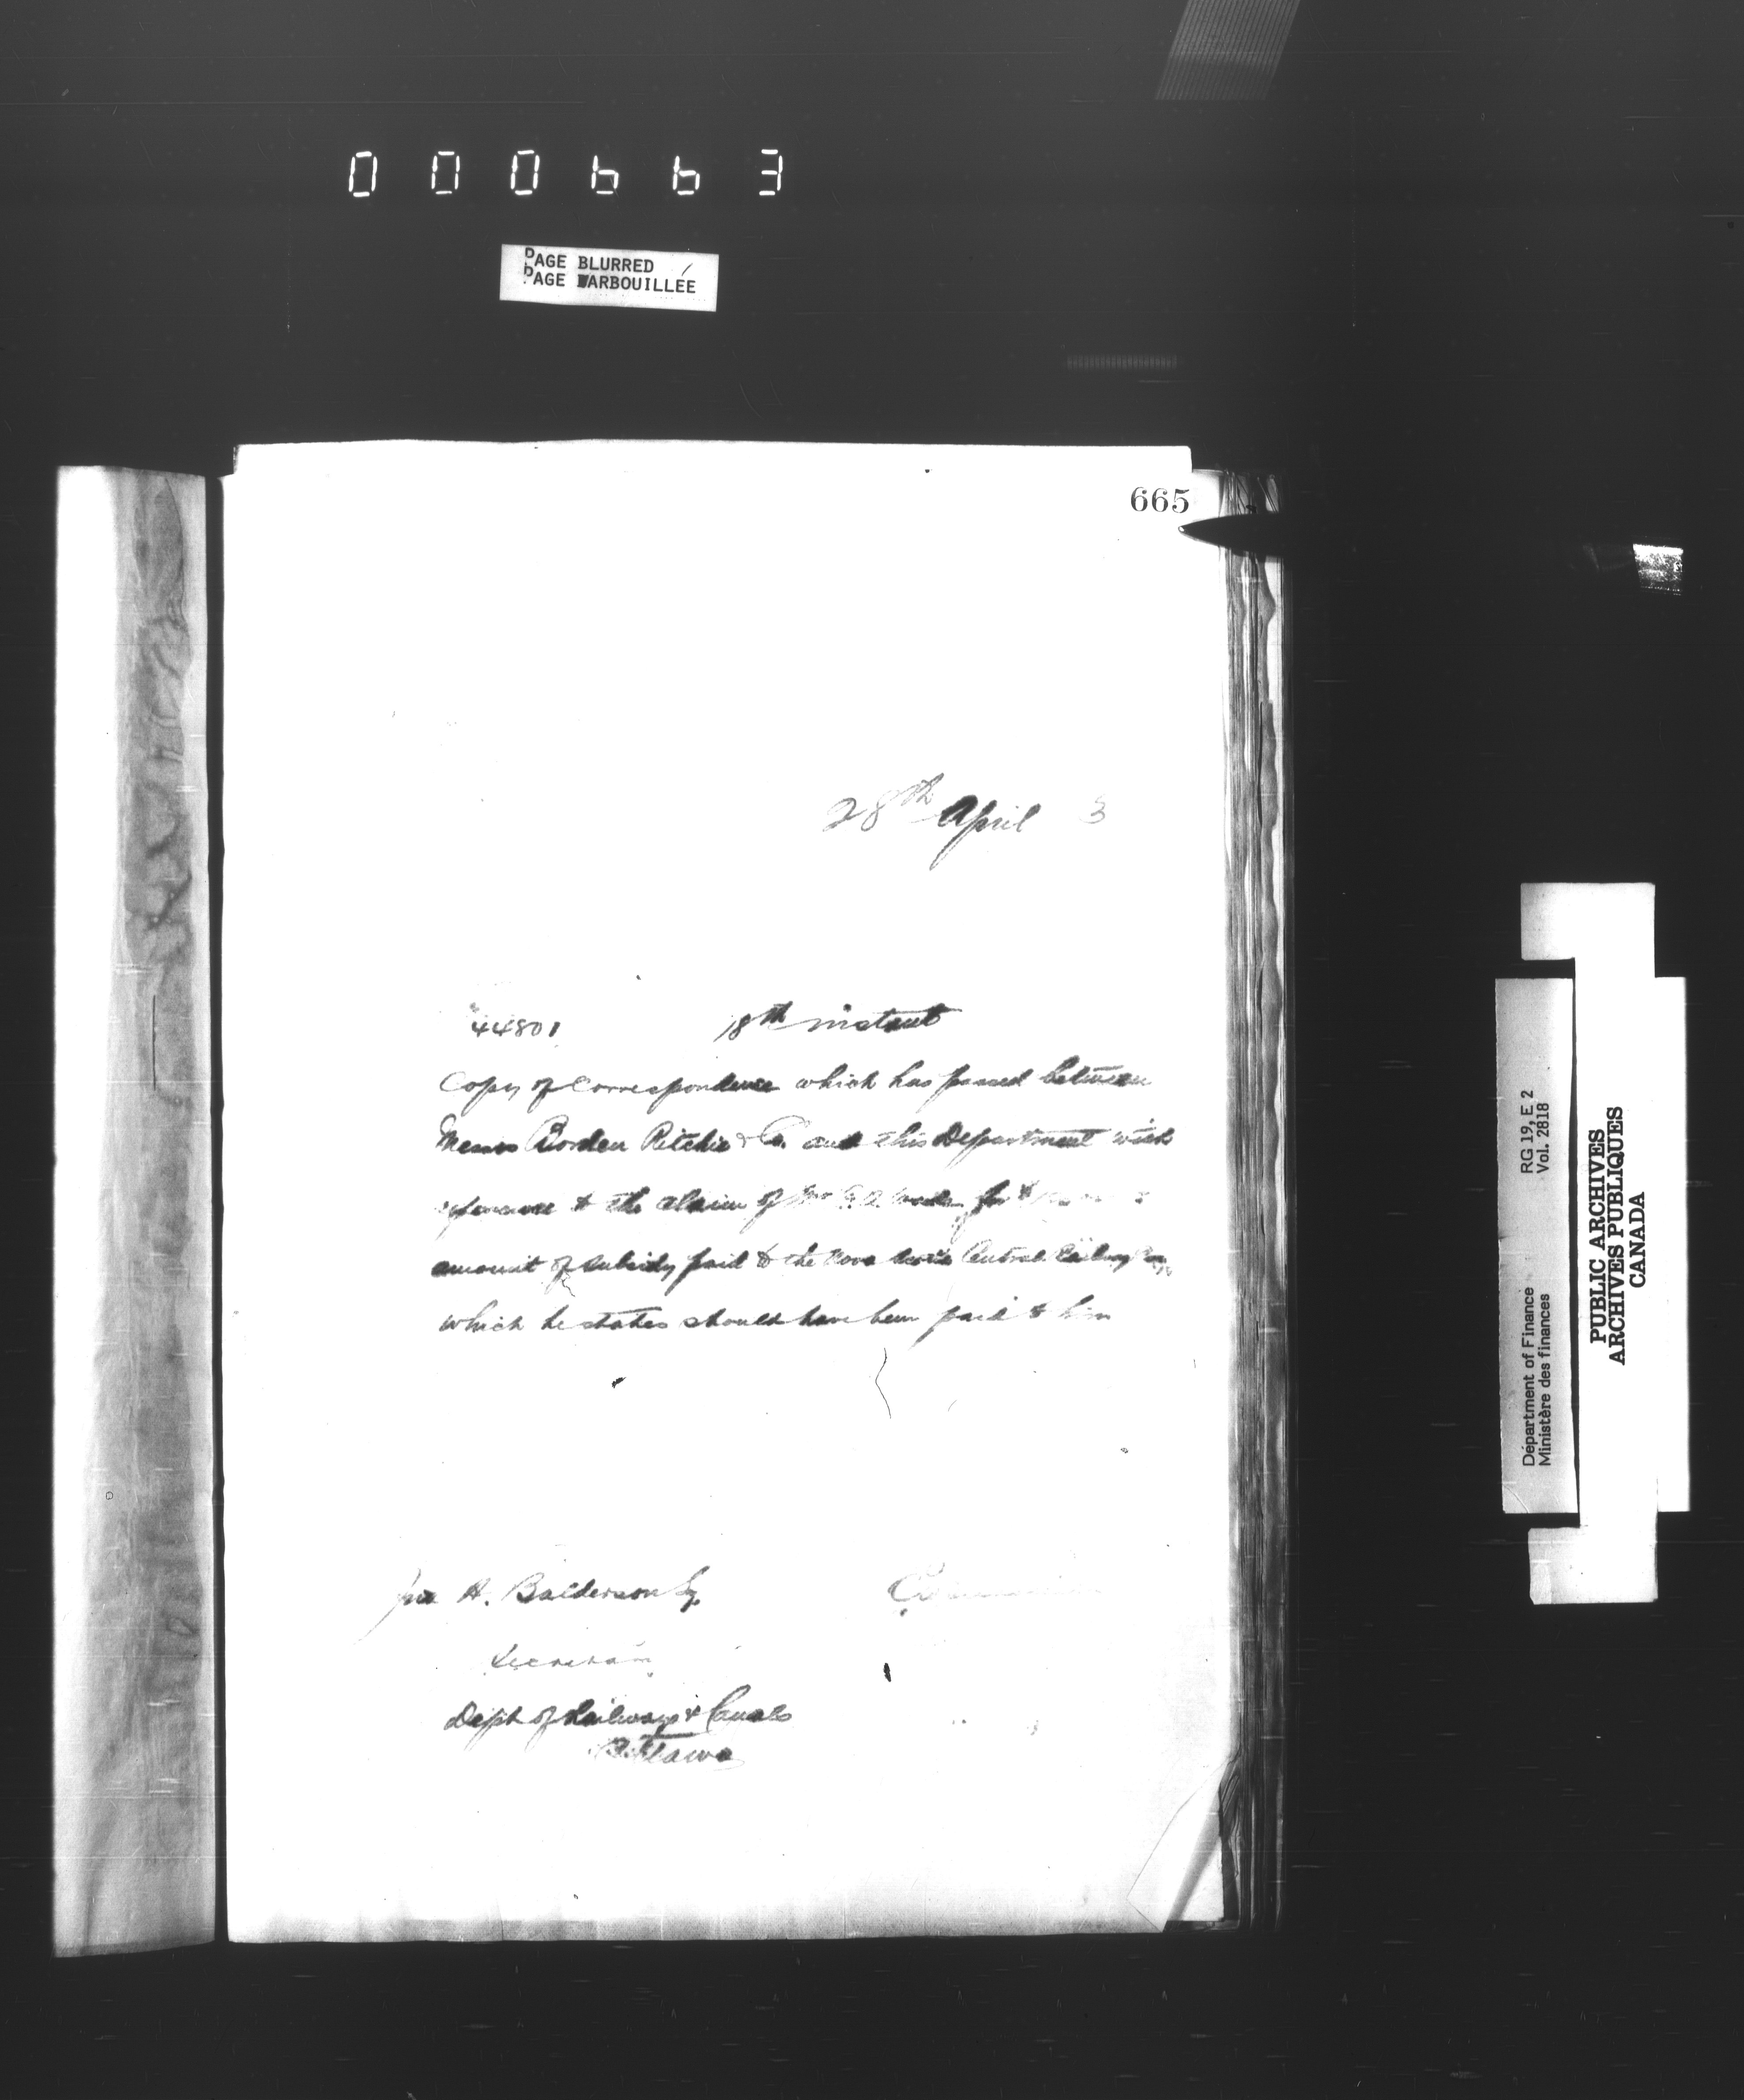 000663
PAGE BLURRED
PAGE BARBOUILLÉE
665
28th April 3
44801 18th instant
Copy of Correspondence which has passed between
Messrs Borden Ritchie & Co. and this Department with
reference to the claim of for
amount of subsidy paid to the Nova Scotia Central Railway Coy
which he states should have been paid to him
Jno A. Balderson Esq.
Secretary
Dept of Railways & Canals
Ottawa
Department of Finance RG 19, E 2
Ministère des finances Vol. 2818
PUBLIC ARCHIVES
ARCHIVES PUBLIQUES
CANADA